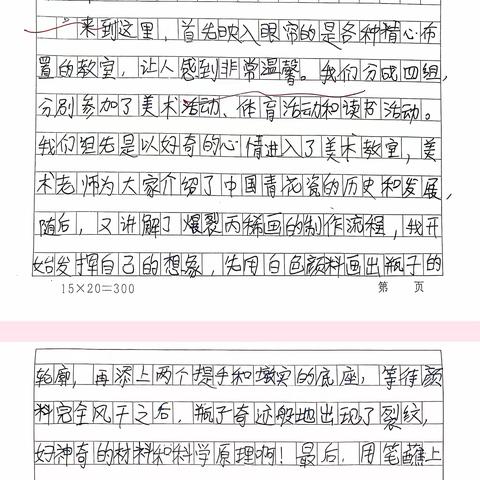 来到这里，首先映入眼帘的是各种精心布
置的教室，让人感到非常温馨。我们分成四组，
分别参加了美术活动、体育活动和读书活动。
我们组先是以好奇的心情进入了美术教室，美
术老师为大家介绍了中国青花瓷的历史和发展，
随后，又讲解了爆裂丙稀画的制作流程，我开
始发挥自己的想象，先用白色颜料画出瓶子的
15×20=300 第 页
轮廓，再添上两个提手和墩实的底座，等待颜
料完全风干之后，瓶子奇迹般地出现了裂纹，
好神奇的材料和科学原理啊！最后，用笔蘸上